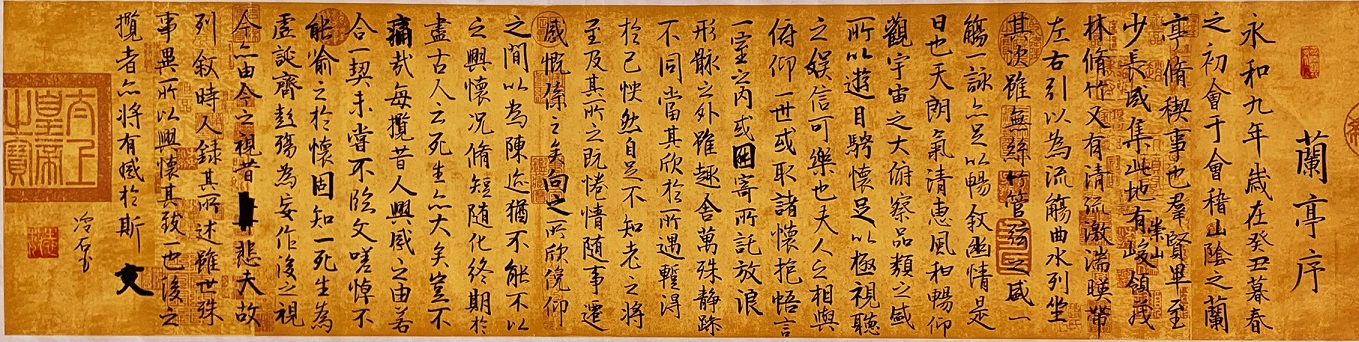 蘭亭序
永和九年歲在癸丑暮春
之初會于會稽山陰之蘭
亭脩稧事也羣賢畢至
少長咸集此地有崇山峻領茂
林脩竹又有清流激湍暎帶
左右引以為流觴曲水列坐
其次雖無絲竹管弦之盛一
觴一詠亦足以暢敘幽情是
日也天朗氣清惠風和暢仰
觀宇宙之大俯察品類之盛
所以遊目騁懷足以極視聽
之娛信可樂也夫人之相與
俯仰一世或取諸懷抱悟言
一室之內或因寄所託放浪
形骸之外雖趣舍萬殊静躁
不同當其欣於所遇暫得
於己怏然自足不知老之將
至及其所之既惓情隨事遷
感慨係之矣向之所欣俛仰
之間以為陳迹猶不能不以
之興懷況脩短隨化終期於
盡古人云死生亦大矣豈不
痛哉每攬昔人興感之由若
合一契未嘗不臨文嗟悼不
能喻之於懷固知一死生為
虛誕齊彭殤為妄作後之視
今亦由今之視昔悲夫故
列敘時人錄其所述雖世殊
事異所以興懷其致一也後之
攬者亦將有感於斯文
太上皇帝之寶